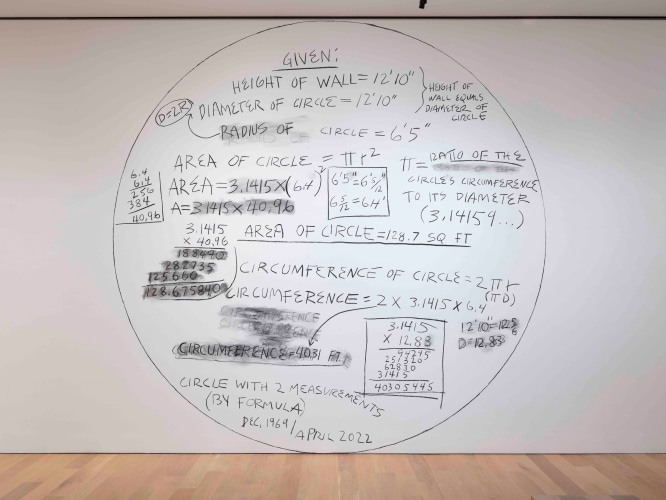 GIVEN:
HEIGHT OF WALL = 12'10"
D=2R DIAMETER OF CIRCLE = 12'10"
HEIGHT OF
WALL EQUALS
DIAMETER OF
CIRCLE
RADIUS OF CIRCLE = 6'5"
AREA OF CIRCLE = πr²
AREA = 3.1415 X (6.4)²
A = 3.1415 X 40.96
6.4
6.4
256
384
40.96
6'5" = 6 5/12'
6 5/12 = 6.4'
π = RATIO OF THE
CIRCLE'S CIRCUMFERENCE
TO ITS DIAMETER
(3.14159...)
3.1415
X 40.96
188490
282735
125660
128.675840
AREA OF CIRCLE = 128.7 SQ FT
CIRCUMFERENCE OF CIRCLE = 2πr
(πD)
CIRCUMFERENCE = 2 X 3.1415 X 6.4
CIRCUMFERENCE
CIRCUMFERENCE = 40.31 FT.
3.1415
X 12.83
94245
251320
62830
31415
40305445
12'10" =
D = 12.83
CIRCLE WITH 2 MEASUREMENTS
(BY FORMULA)
DEC, 1969 / APRIL 2022